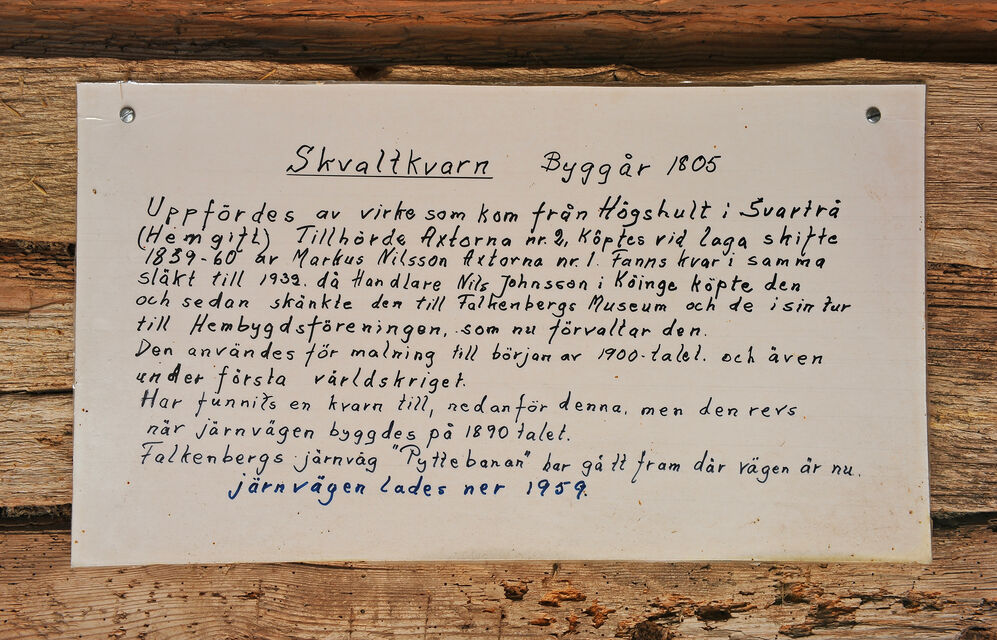 Skvaltkvarn Byggår 1805
Uppfördes av virke som kom från Högshult i Svartrå
(Hemgift) Tillhörde Axtorna nr. 2, Köptes vid laga skifte
1839-60 av Markus Nilsson Axtorna nr. 1. Fanns kvar i samma
släkt till 1932. då Handlare Nils Johnsson i Köinge köpte den
och sedan skänkte den till Falkenbergs Museum och de i sin tur
till Hembygdsföreningen, som nu förvaltar den.
Den användes för malning till början av 1900-talet. och även
under första världskriget.
Har funnits en kvarn till, nedanför denna, men den revs
när järnvägen byggdes på 1890 talet.
Falkenbergs järnväg "Pyttebanan" har gått fram där vägen är nu.
järnvägen lades ner 1959.